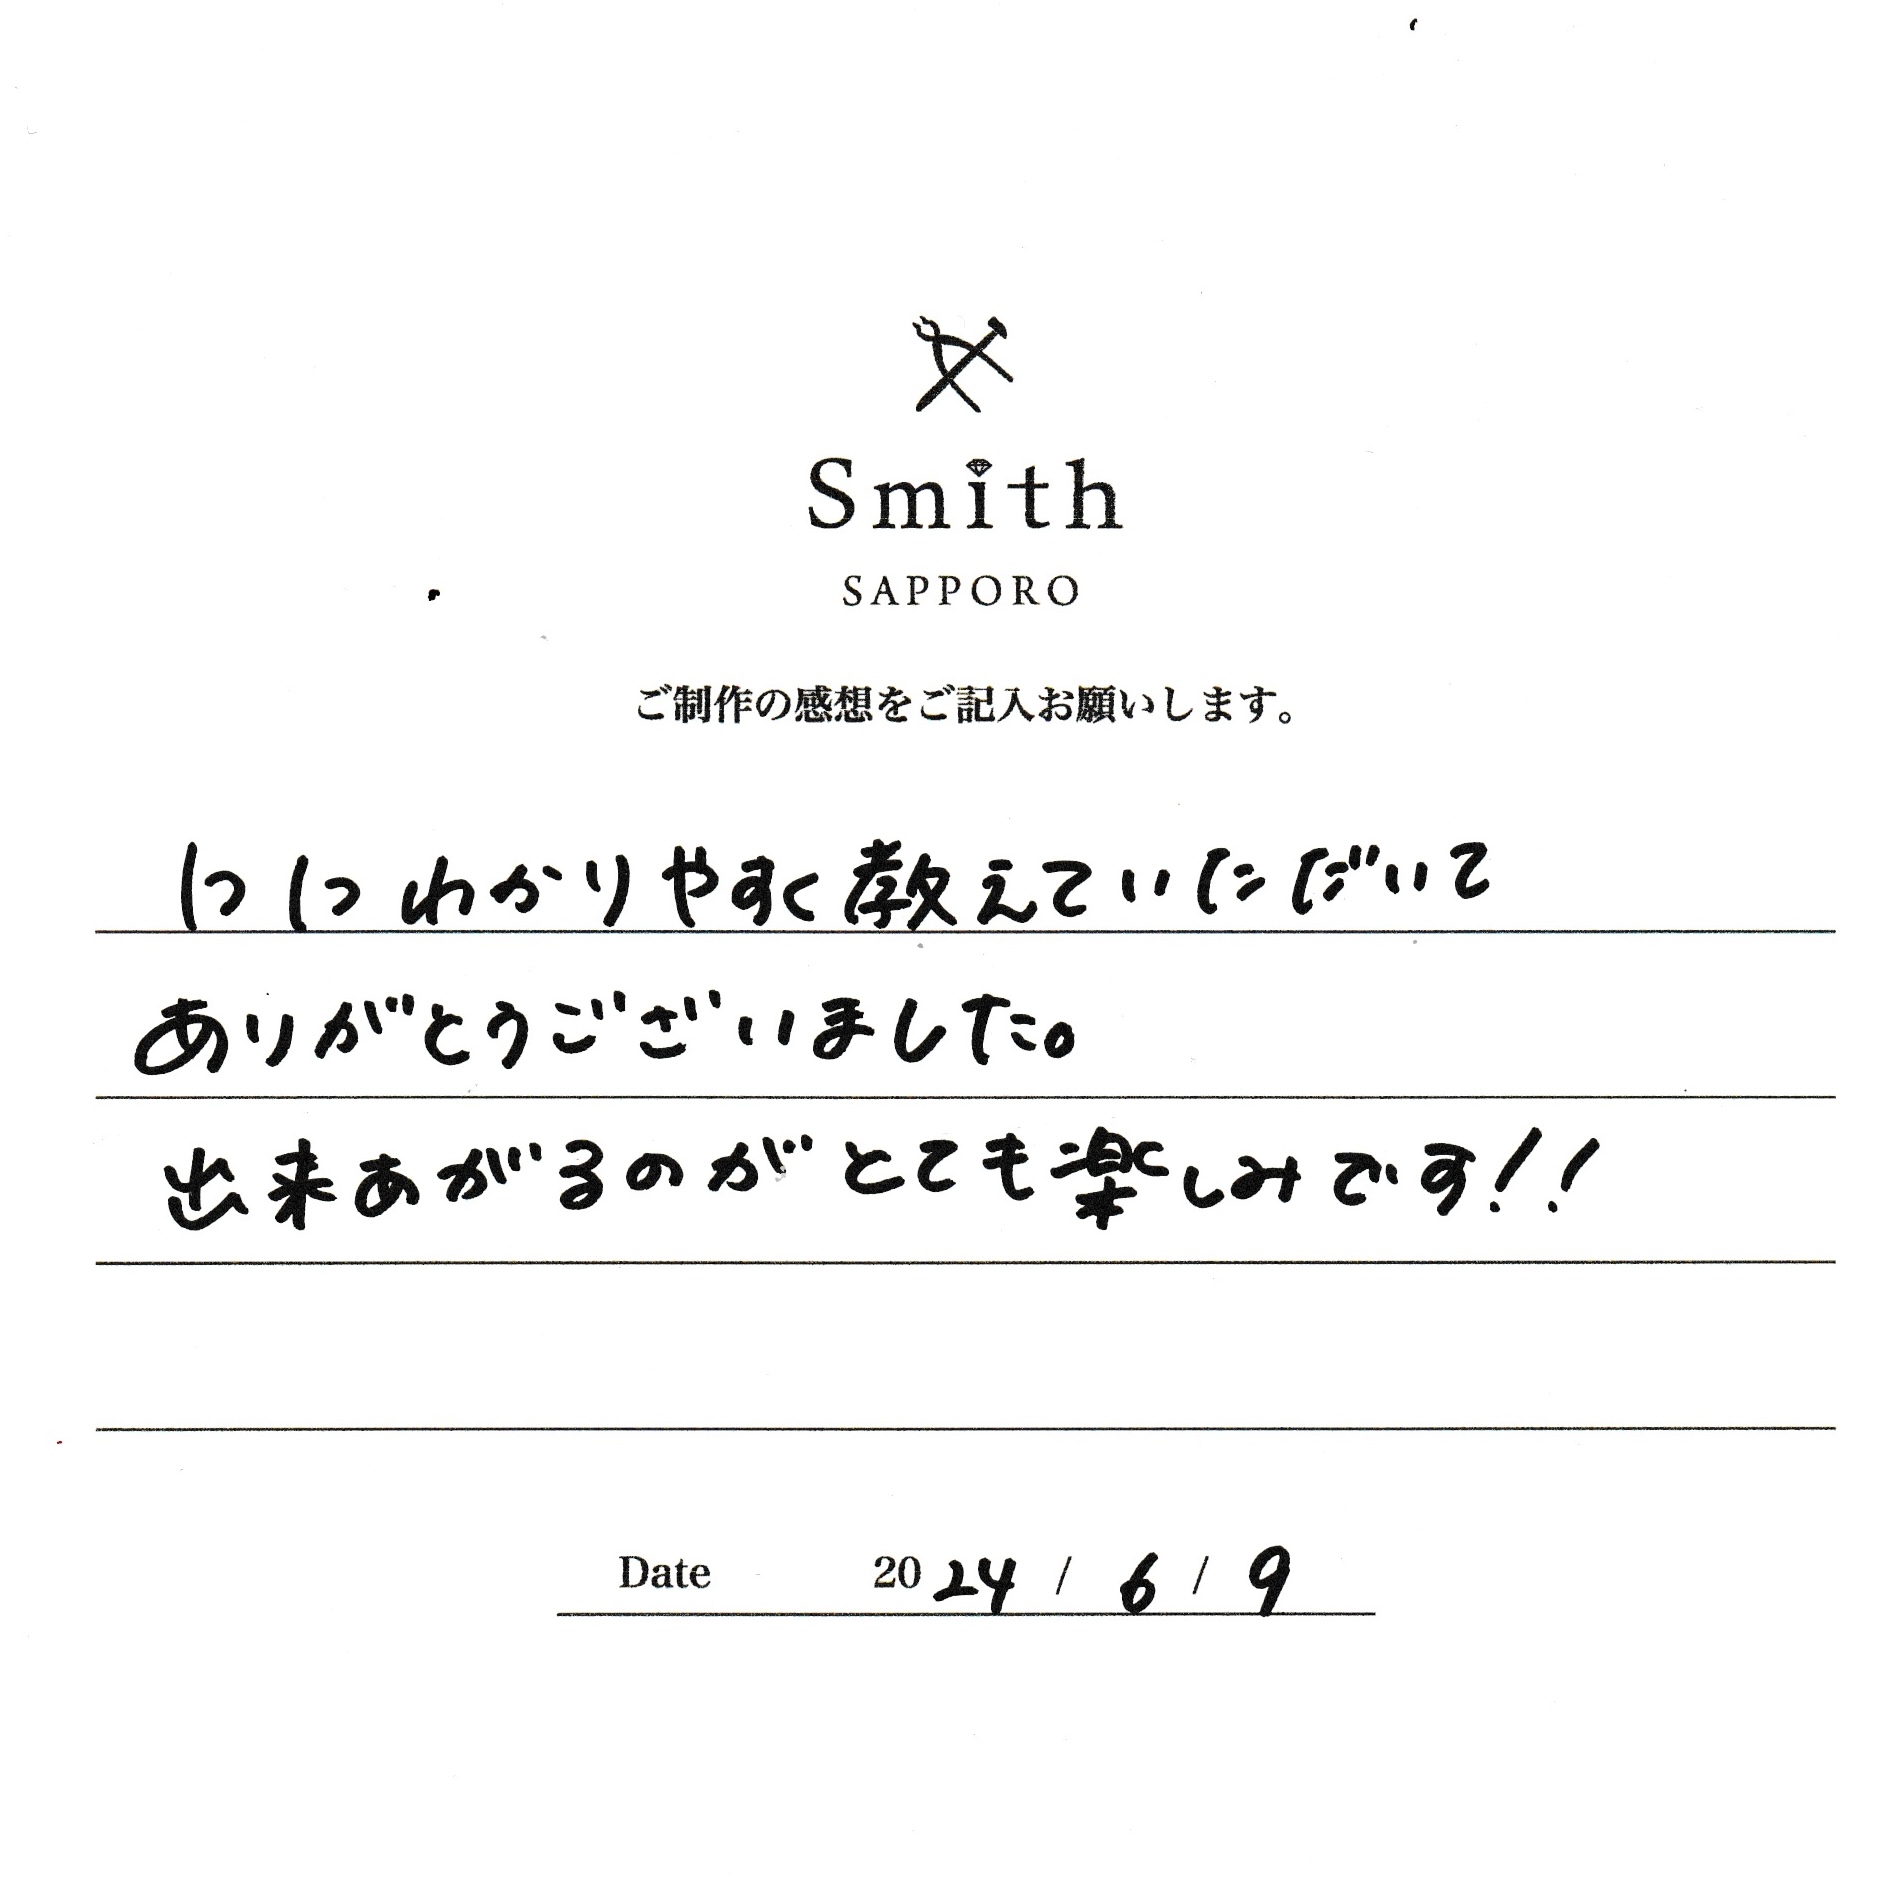 Smith
SAPPORO
ご制作の感想をご記入お願いします。
1つ1つわかりやすく教えていただいて
ありがとうございました。
出来あがるのがとても楽しみです!!
Date 2024 / 6 / 9